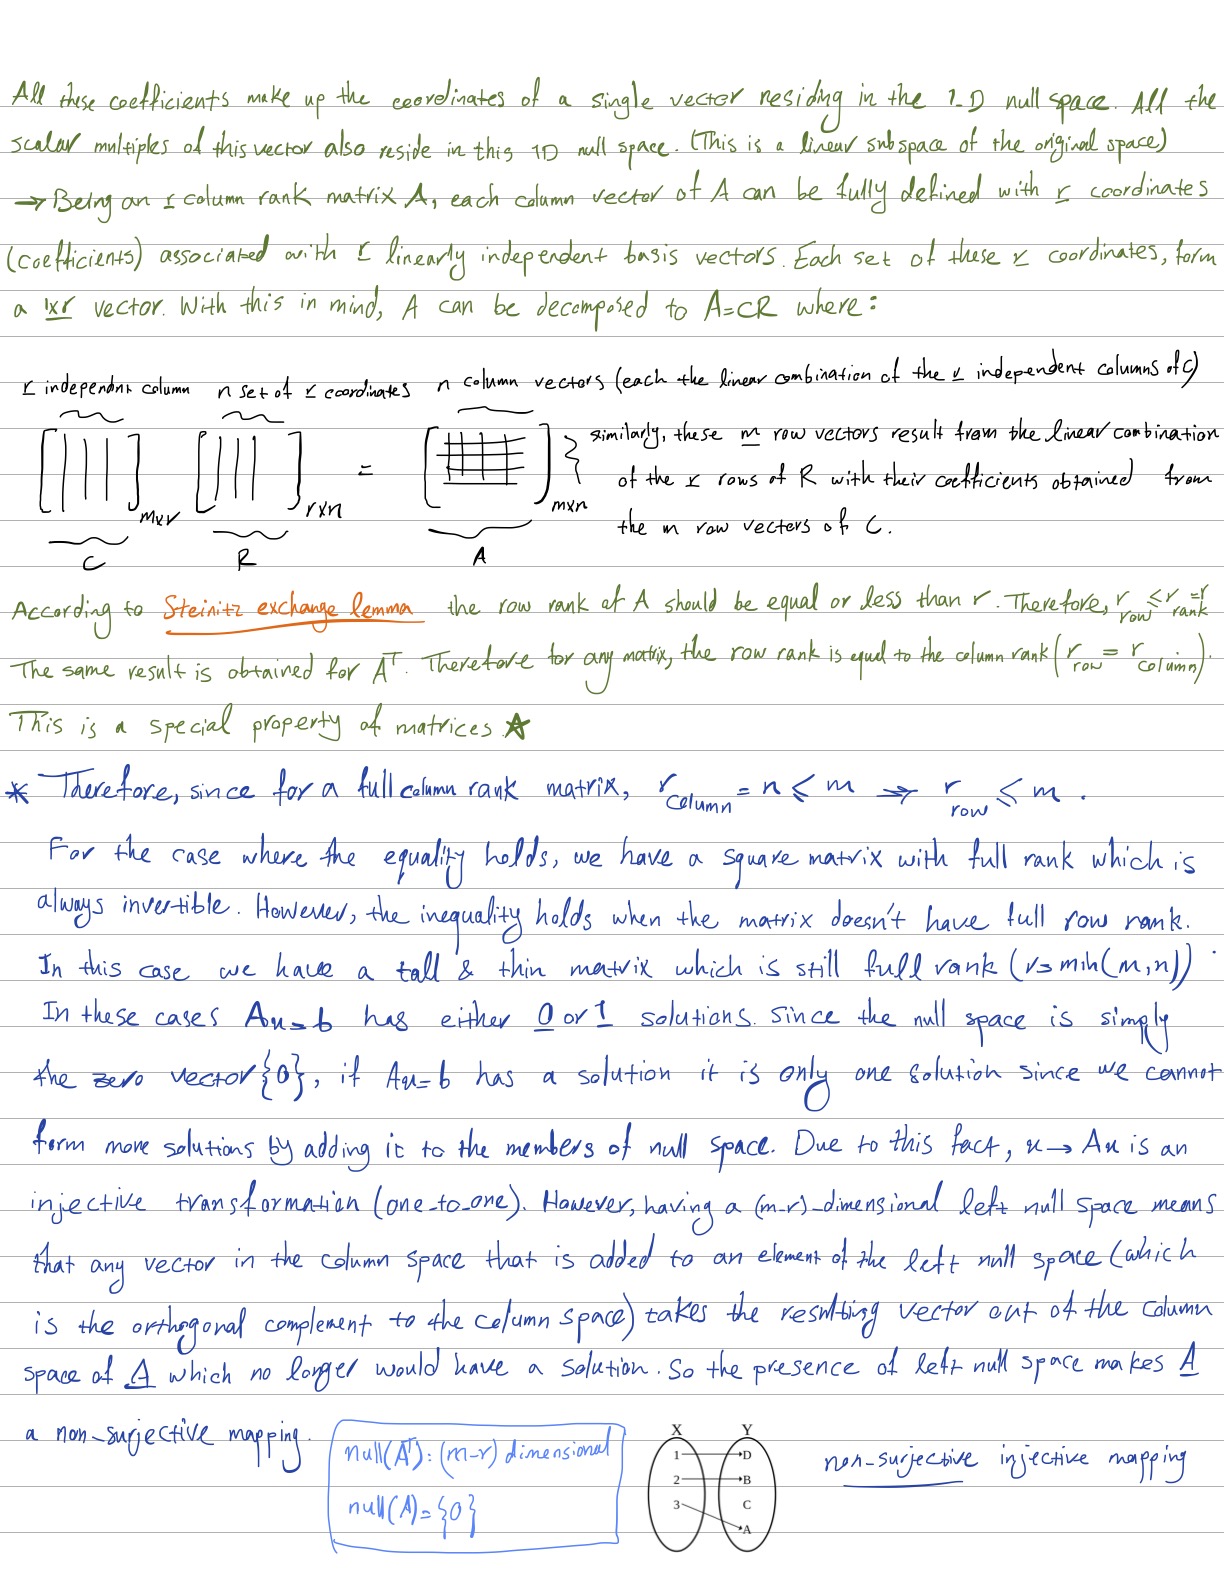 All these coefficients make up the coordinates of a single vector residing in the 1-D null space. All the
scalar multiples of this vector also reside in this 1D null space. (This is a linear subspace of the original space)
→ Being an r column rank matrix A, each column vector of A can be fully defined with r coordinates
(coefficients) associated with r linearly independent basis vectors. Each set of these r coordinates, form
a 1xr vector. With this in mind, A can be decomposed to A=CR where:
r independent column n set of r coordinates n column vectors (each the linear combination of the r independent columns of C)
similarly, these m row vectors result from the linear combination
of the r rows of R with their coefficients obtained from
the m row vectors of C.
[ ]mxr [ ]rxn = [ ]mxn
C R A
According to Steinitz exchange lemma the row rank of A should be equal or less than r. Therefore, r row ≤ r = r rank
The same result is obtained for Aᵀ. Therefore for any matrix, the row rank is equal to the column rank (r row = r column).
This is a special property of matrices ☆
* Therefore, since for a full column rank matrix, r column = n ≤ m → r row ≤ m.
For the case where the equality holds, we have a square matrix with full rank which is
always invertible. However, the inequality holds when the matrix doesn't have full row rank.
In this case we have a tall & thin matrix which is still full rank (r=min(m,n)).
In these cases Ax=b has either 0 or 1 solutions. Since the null space is simply
the zero vector {0}, if Ax=b has a solution it is only one solution since we cannot
form more solutions by adding it to the members of null space. Due to this fact, x→Ax is an
injective transformation (one_to_one). However, having a (m-r)-dimensional left null space means
that any vector in the column space that is added to an element of the left null space (which
is the orthogonal complement to the column space) takes the resulting vector out of the column
space of A which no longer would have a solution. So the presence of left null space makes A
a non-surjective mapping.
null(Aᵀ): (m-r) dimensional
null(A)={0}
X Y
1 D
2 B
3 C
A
non-surjective injective mapping